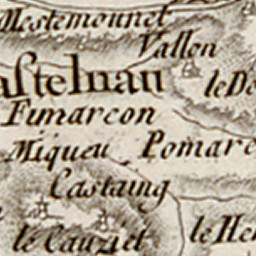 Mestemonnet
Vallon
astelnau
le De
Fimarcon
Miqueu Pomare
Castaing
le Cauziet
le He